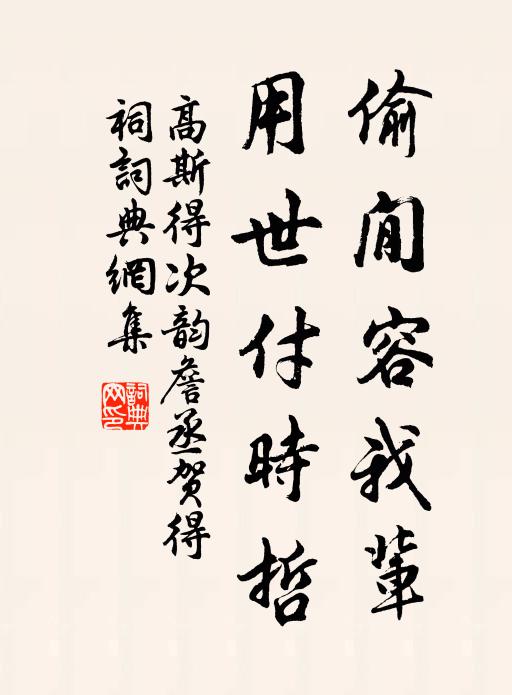 偷閒容我輩
用世付時哲
高斯得次韵詹丞贺得
祠詞典網集
詞典
网印